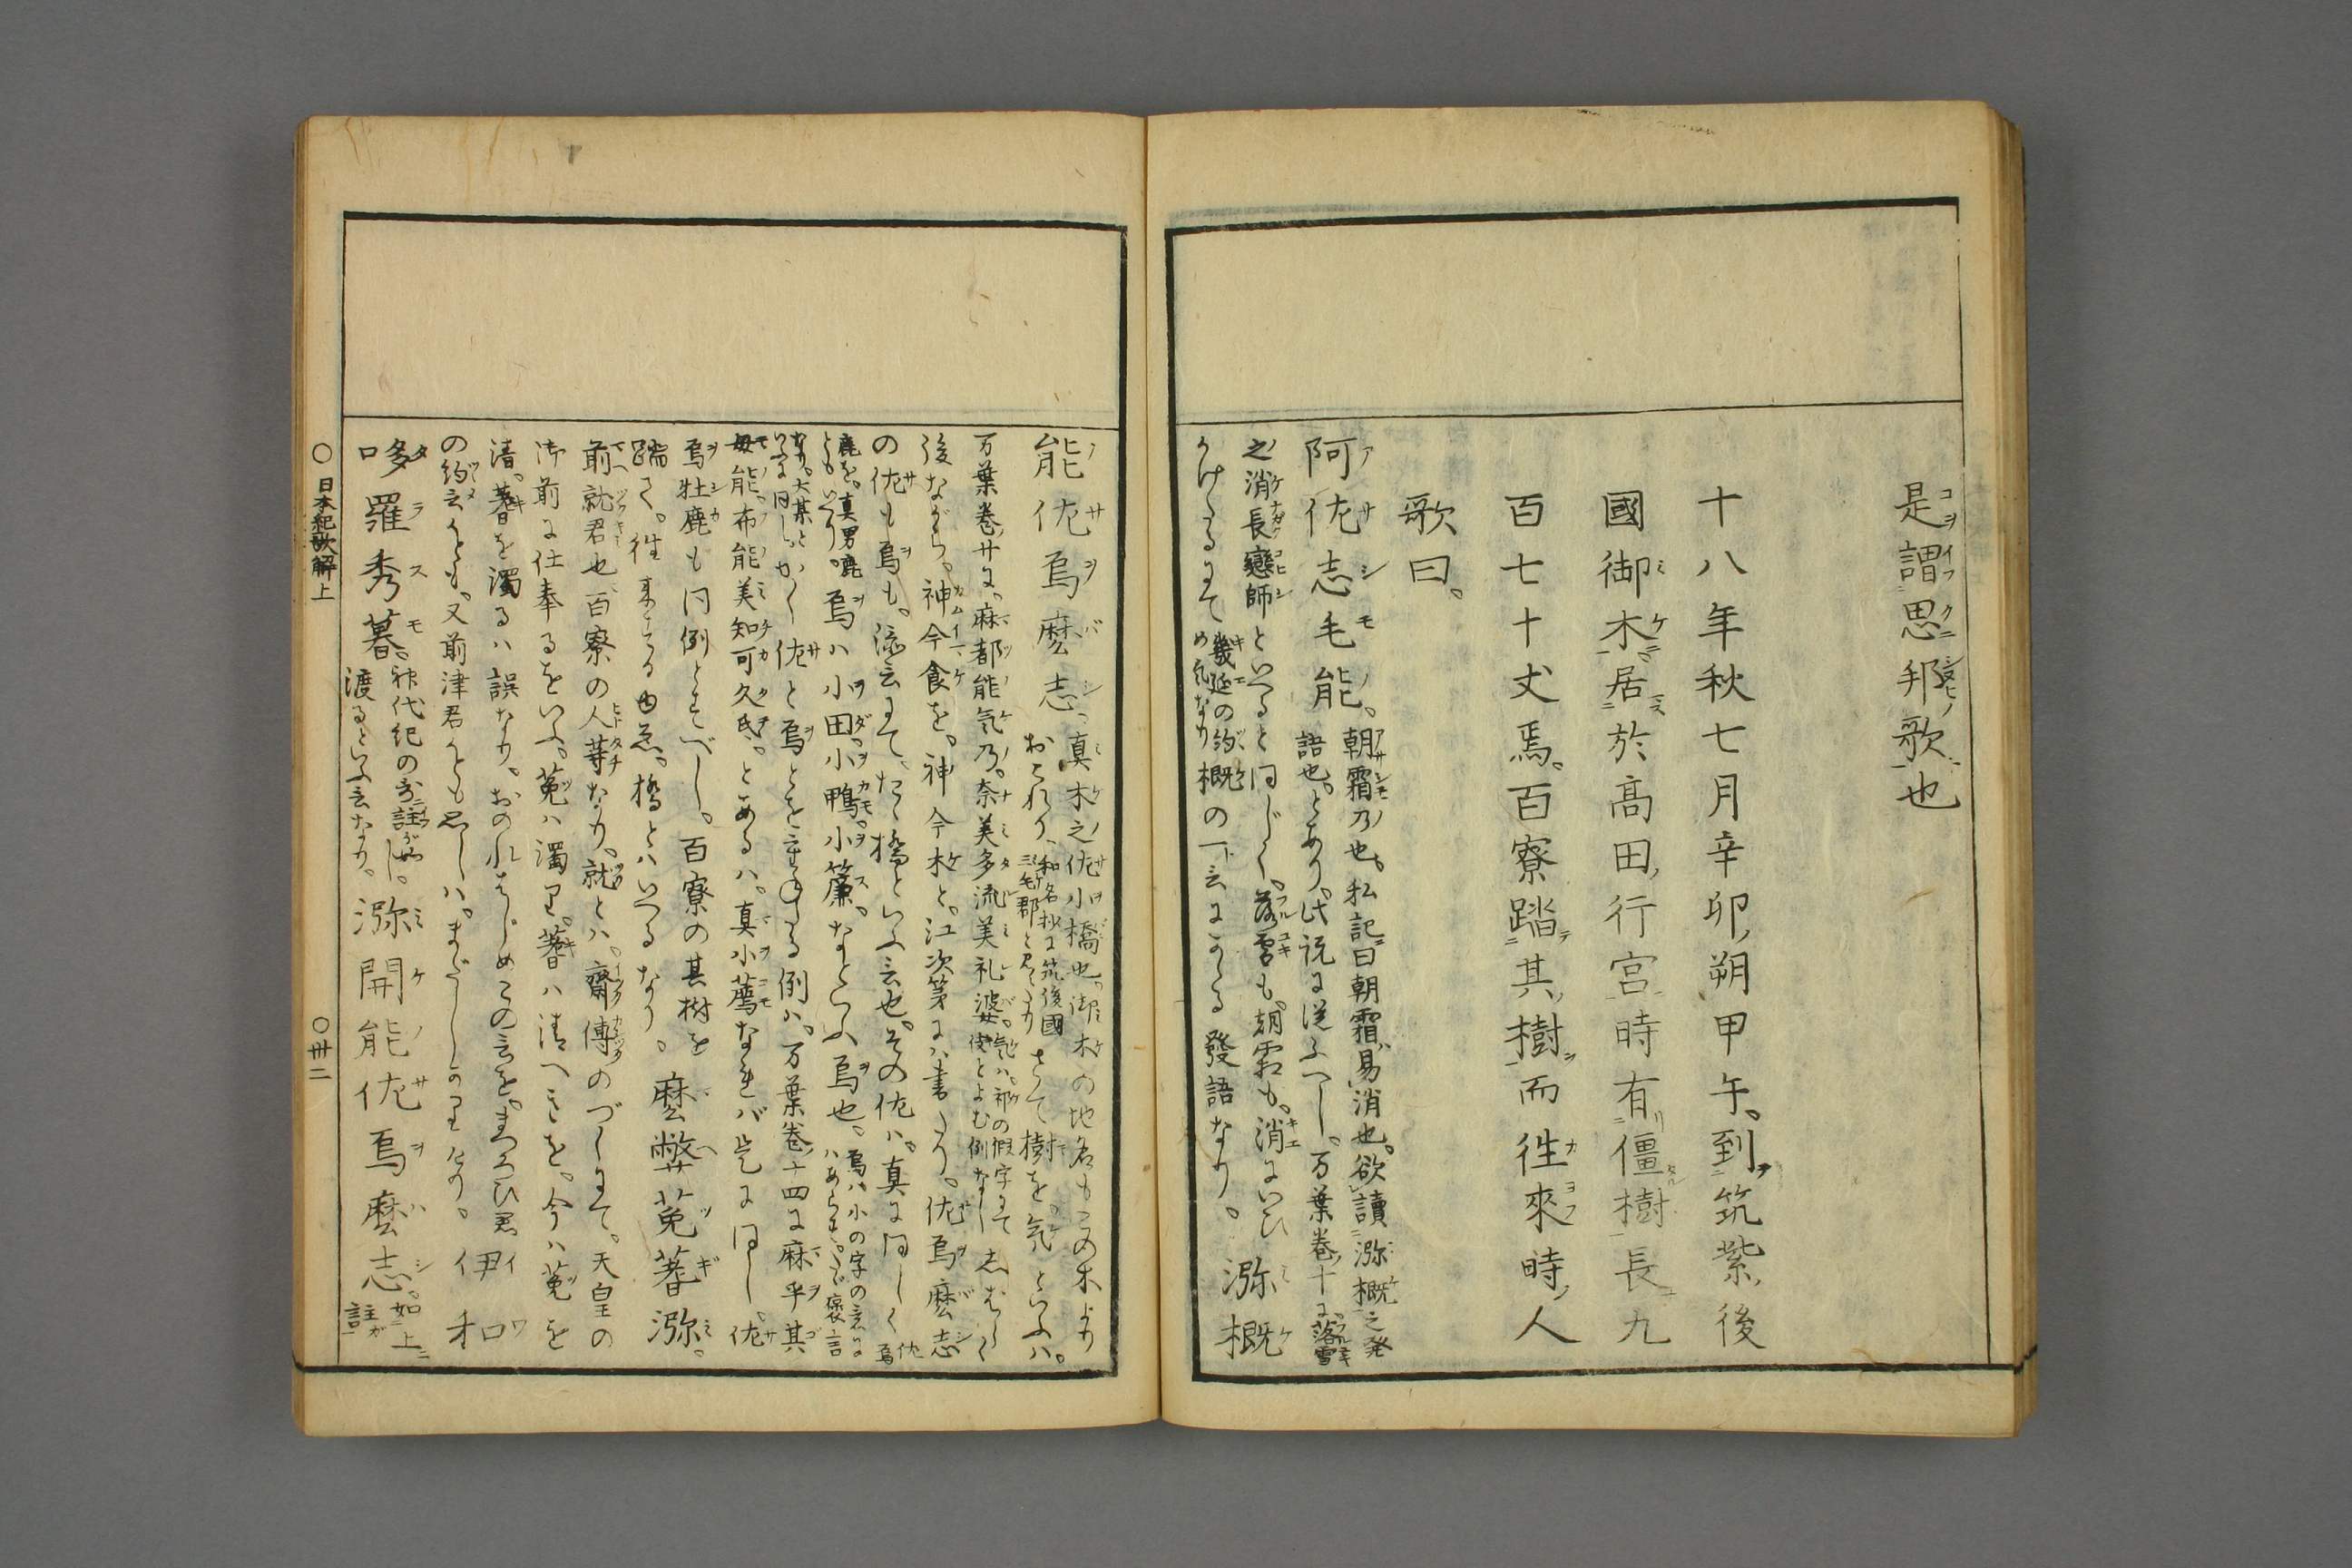 是謂思邦歌也
十八年秋七月辛卯朔甲午。到筑紫後
國御木居於高田行宮時有僵樹長九
百七十丈焉。百寮踏其樹而往來時人
歌曰。
阿佐志毛能。朝霜乃也。私記曰朝霜易消也。欲讀弥概之発
語也。とあり。此説に従ふへし。万葉巻十に落雪
之消長戀師といへると同じく。落雪も。朝霜も。消まいひ
かけたるにて幾延の約概
め気なりの一言にかゝる發語なり。弥概
能佐烏麼志、真木之佐小橋也。御木の地名もこの木より
おこれり、和名抄に筑後國
三毛郡と見えたり さて樹を。気といふハ。
万葉巻廿に。麻都能気乃。奈美多流美礼婆。気ハ。祁の假字にて
使とよむ例なし 志はらく
後ながら。神今食を。神今木と。江次第にハ書たり。佐烏麼志
の佐も烏も。添言にて、たゝ橋といふ言也。その佐ハ。真に同しく 佐烏
鹿を。真男鹿
ともいへり。烏ハ小田。小鴨。小簾。なといふ烏也。烏ハ小の字の意に
ハあらす。たゝ褒言
なり。大某と
いふに同し かく佐と烏とを重ねたる例ハ。万葉巻十四に麻乎其
母能。布能美知可久氐。とあるハ。真小薦なれバ是に同し。佐
烏牡鹿も同例とすべし。百寮の其樹を
踏て。往来する由忌。橋とハいへるなり。麼弊菟耆弥。
前就君也百寮の人等なり。就とハ。齋傅のづしにて。天皇の
御前に仕奉るをいふ。菟ハ濁り。耆ハ清へきを。今ハ菟を
清。耆を濁るハ誤なり。おのれはじめこの言を。まつろひ君
の約言かとも。又前津君かとも思しハ。まだしかりけり。伊和
哆羅秀暮。神代紀の哥ニ註カ如し。
渡るといふ言なり。弥開能佐烏麼志。如上ニ
註ガ
○日本紀歌解上 ○卅二